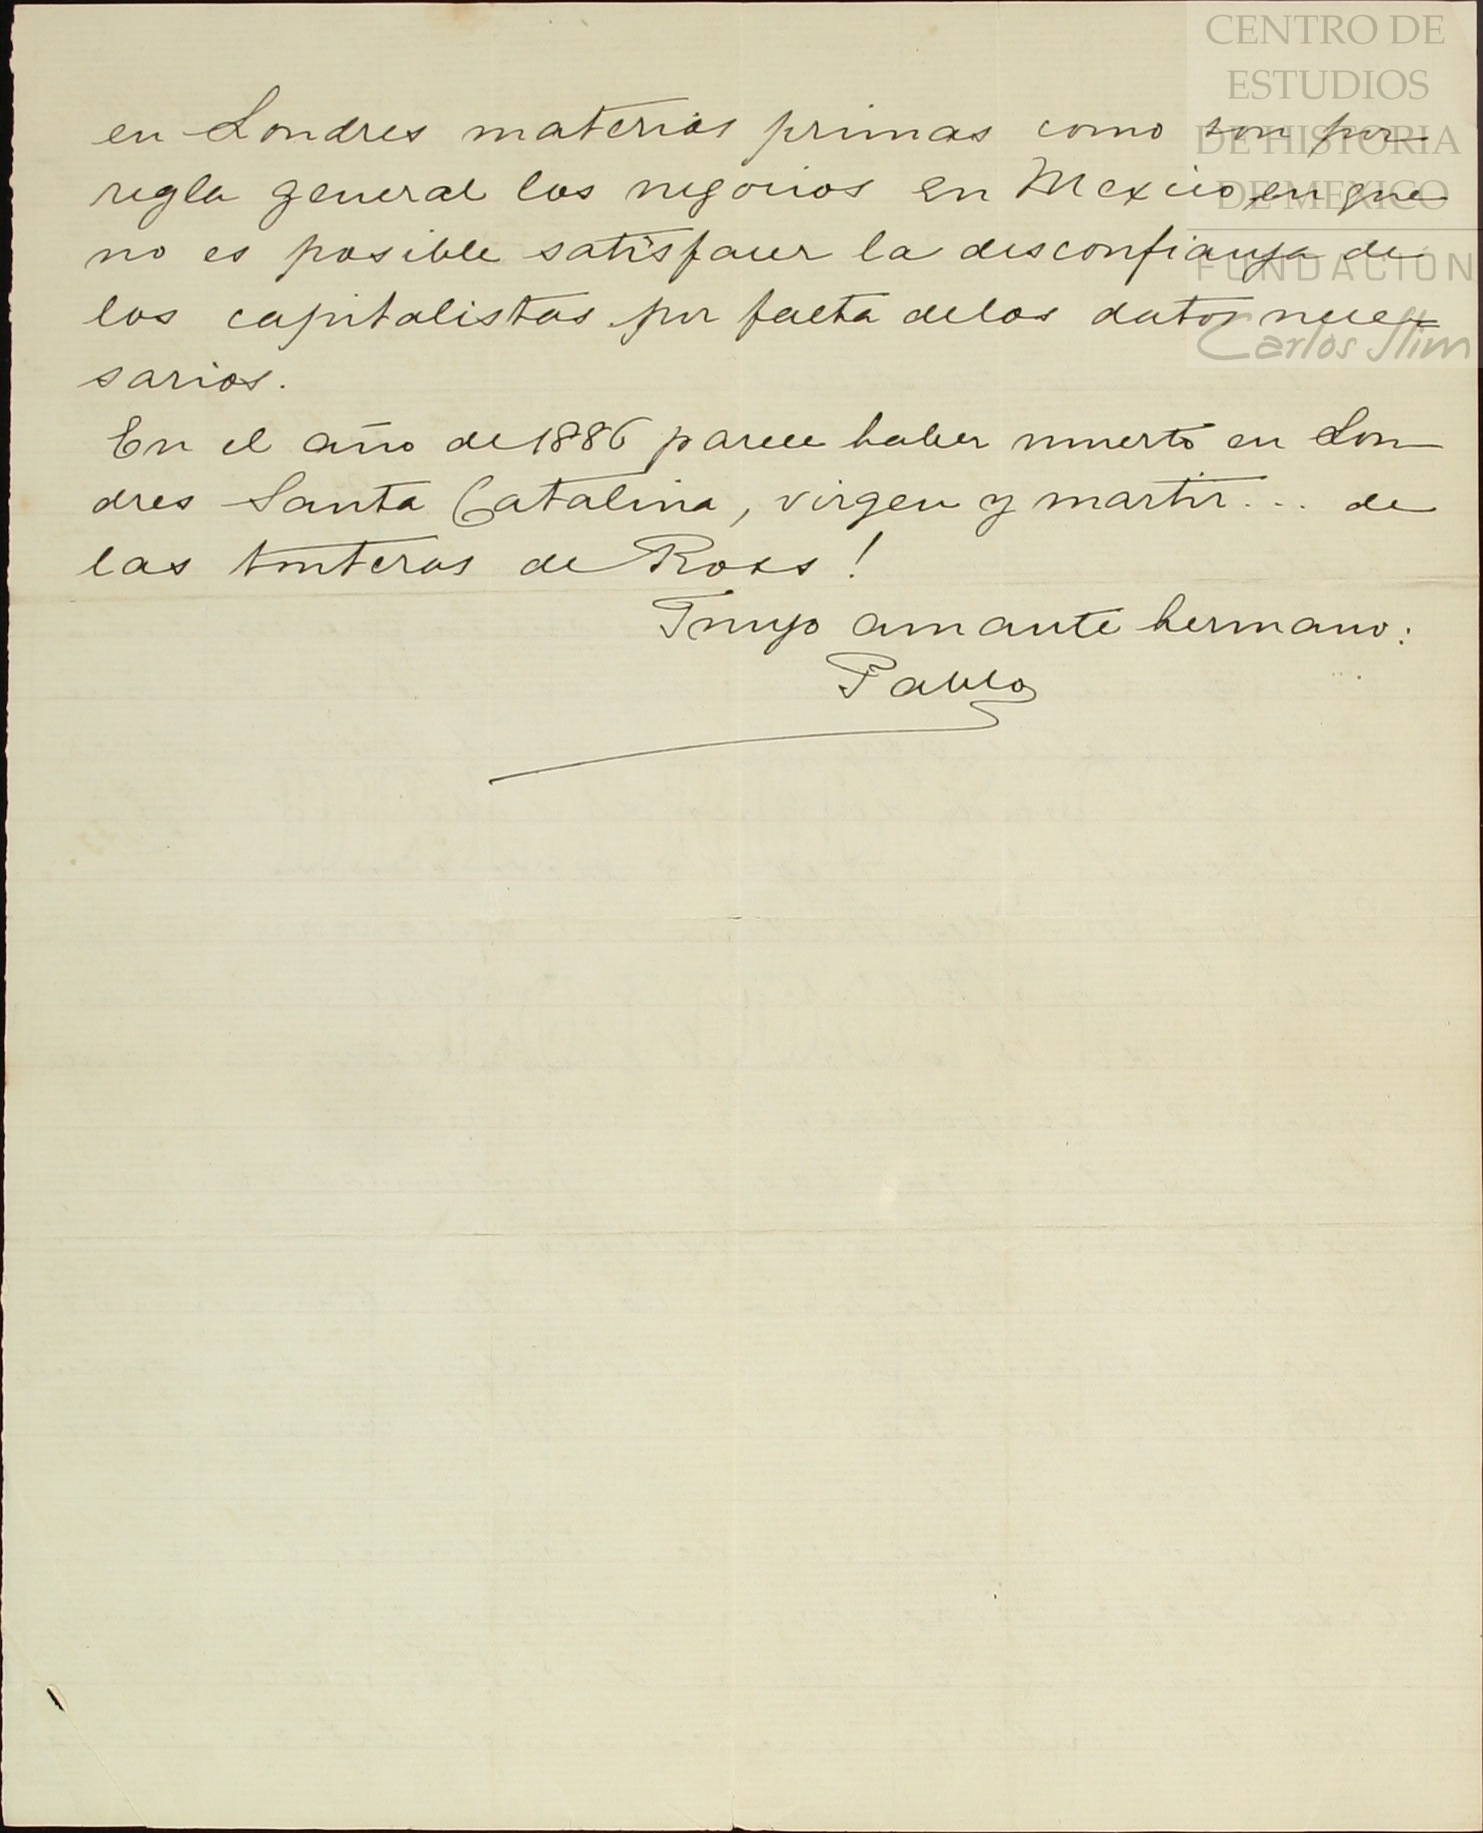 CENTRO DE
ESTUDIOS
DE HISTORIA
DE MEXICO
FUNDACION
Carlos Slim
en Londres materias primas como son por
regla general los negocios en Mexico, en que
no es posible satisfacer la desconfianza de
los capitalistas por falta de los datos nece-
sarios.
En el año de 1886 parece haber muerto en Lon-
dres Santa Catalina, virgen y martir... de
las tonteras de Ross!
Tuuyo amante hermano:
Pablo